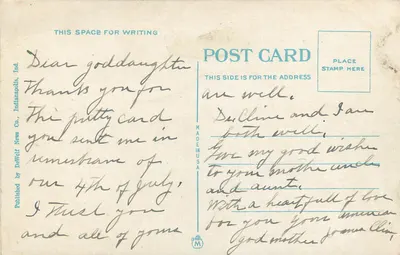 THIS SPACE FOR WRITING
Dear goddaughter
Thanks you for
The pritty card
you sent me in
of
our 4th of July.
I trust you
and all of yours
POST CARD
THIS SIDE IS FOR THE ADDRESS
PLACE
STAMP HERE
are well.
and I are
both well.
Give my good wishes
to your mother uncle
and aunt.
With a heart full of love
for you your
god mother
Published by DeWolf News Co., Indianapolis, Ind.
M